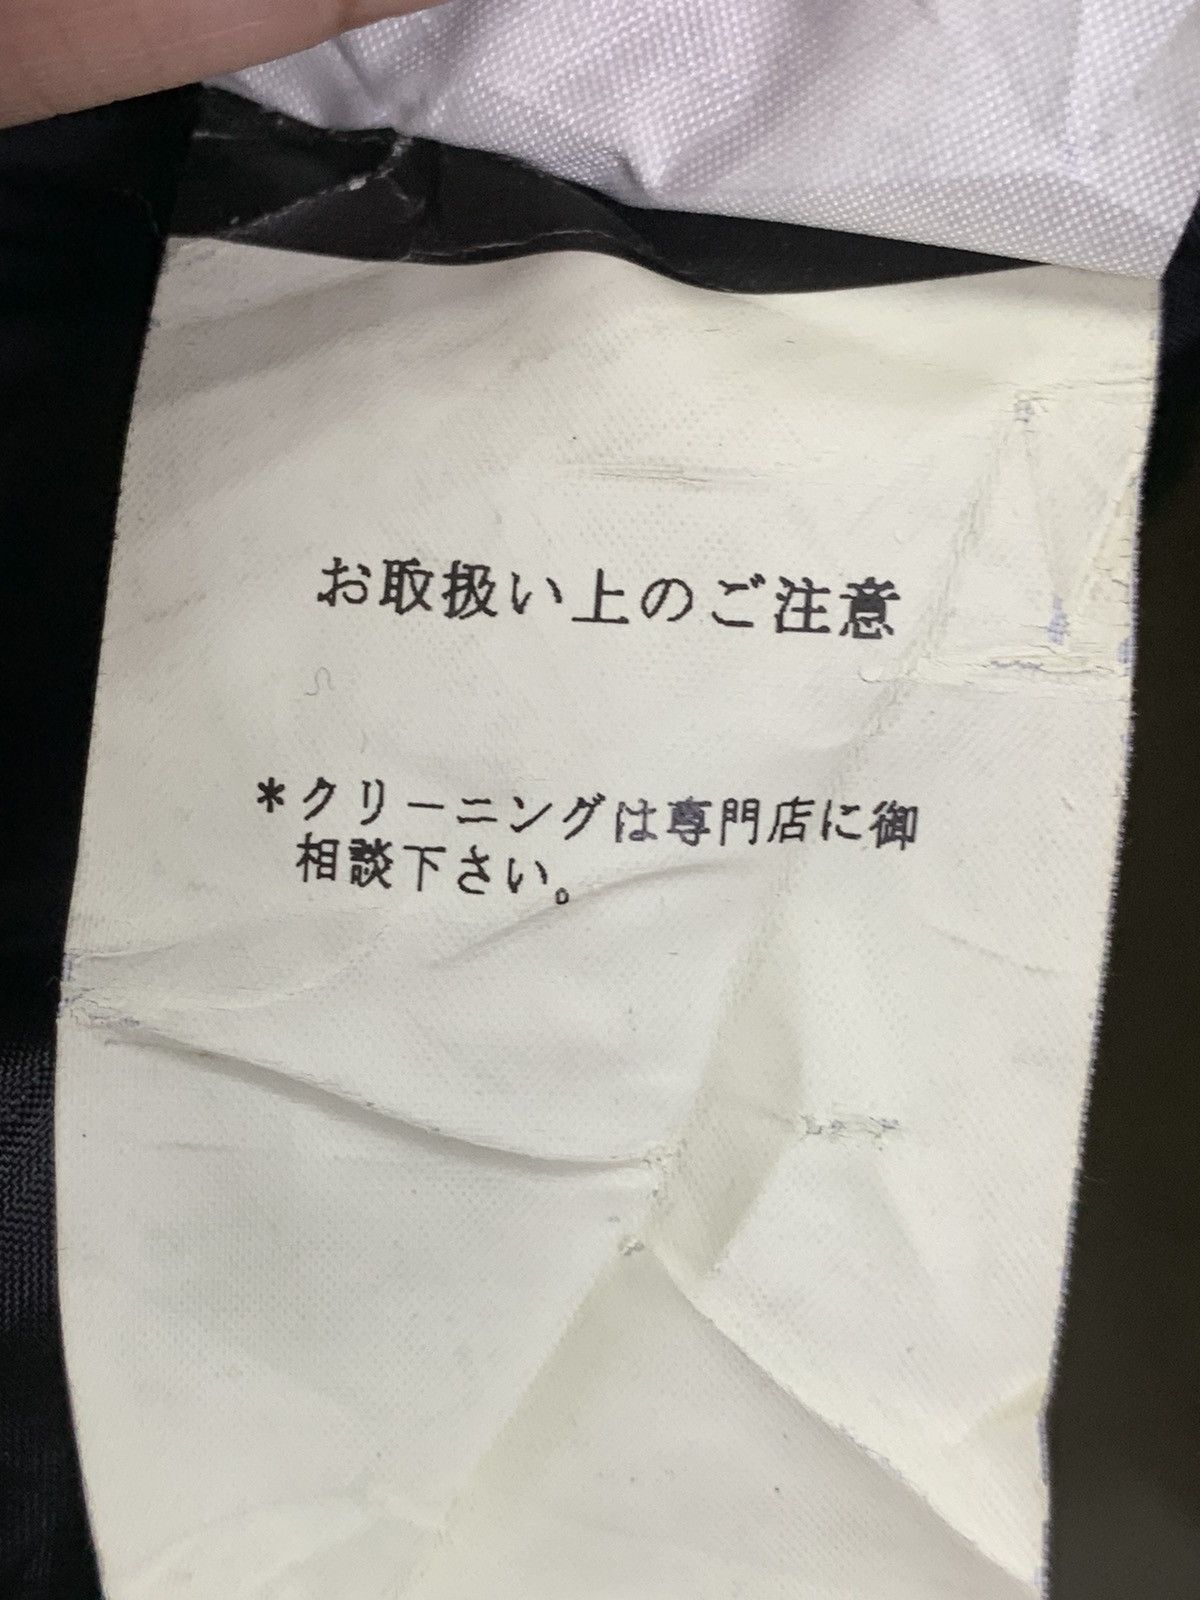 お取扱い上のご注意
*クリーニングは専門店に御
相談下さい。